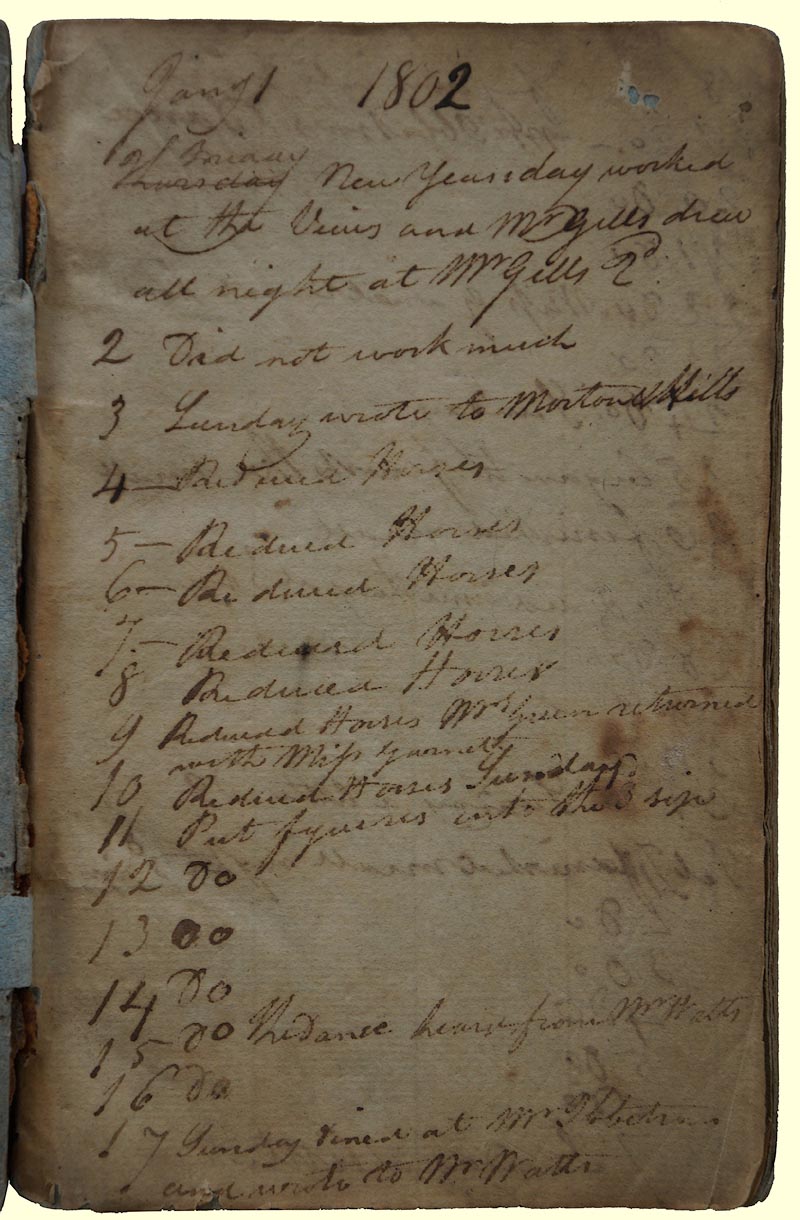 Jany 1 1802
Friday
Thursday New Yearsday worked
at the Views and Mr Gells drew
all night at Mr Gells 2d
2 Did not work much
3 Sunday wrote to Morton &
4 — Reduced Horses
5 — Reduced Horses
6 — Reduced Horses
7 — Reduced Horses
8 Reduced Horses
9 Reduced Horses Mrs Green returned
with Miss Garnett
10 Reduced Horses Sunday
11 Put figures into the 3 six
12 Do
13 Do
14 Do
15 Do heard from Mr Watts
16 Do
17 Sunday dined at Mr
and wrote to Mr Watts